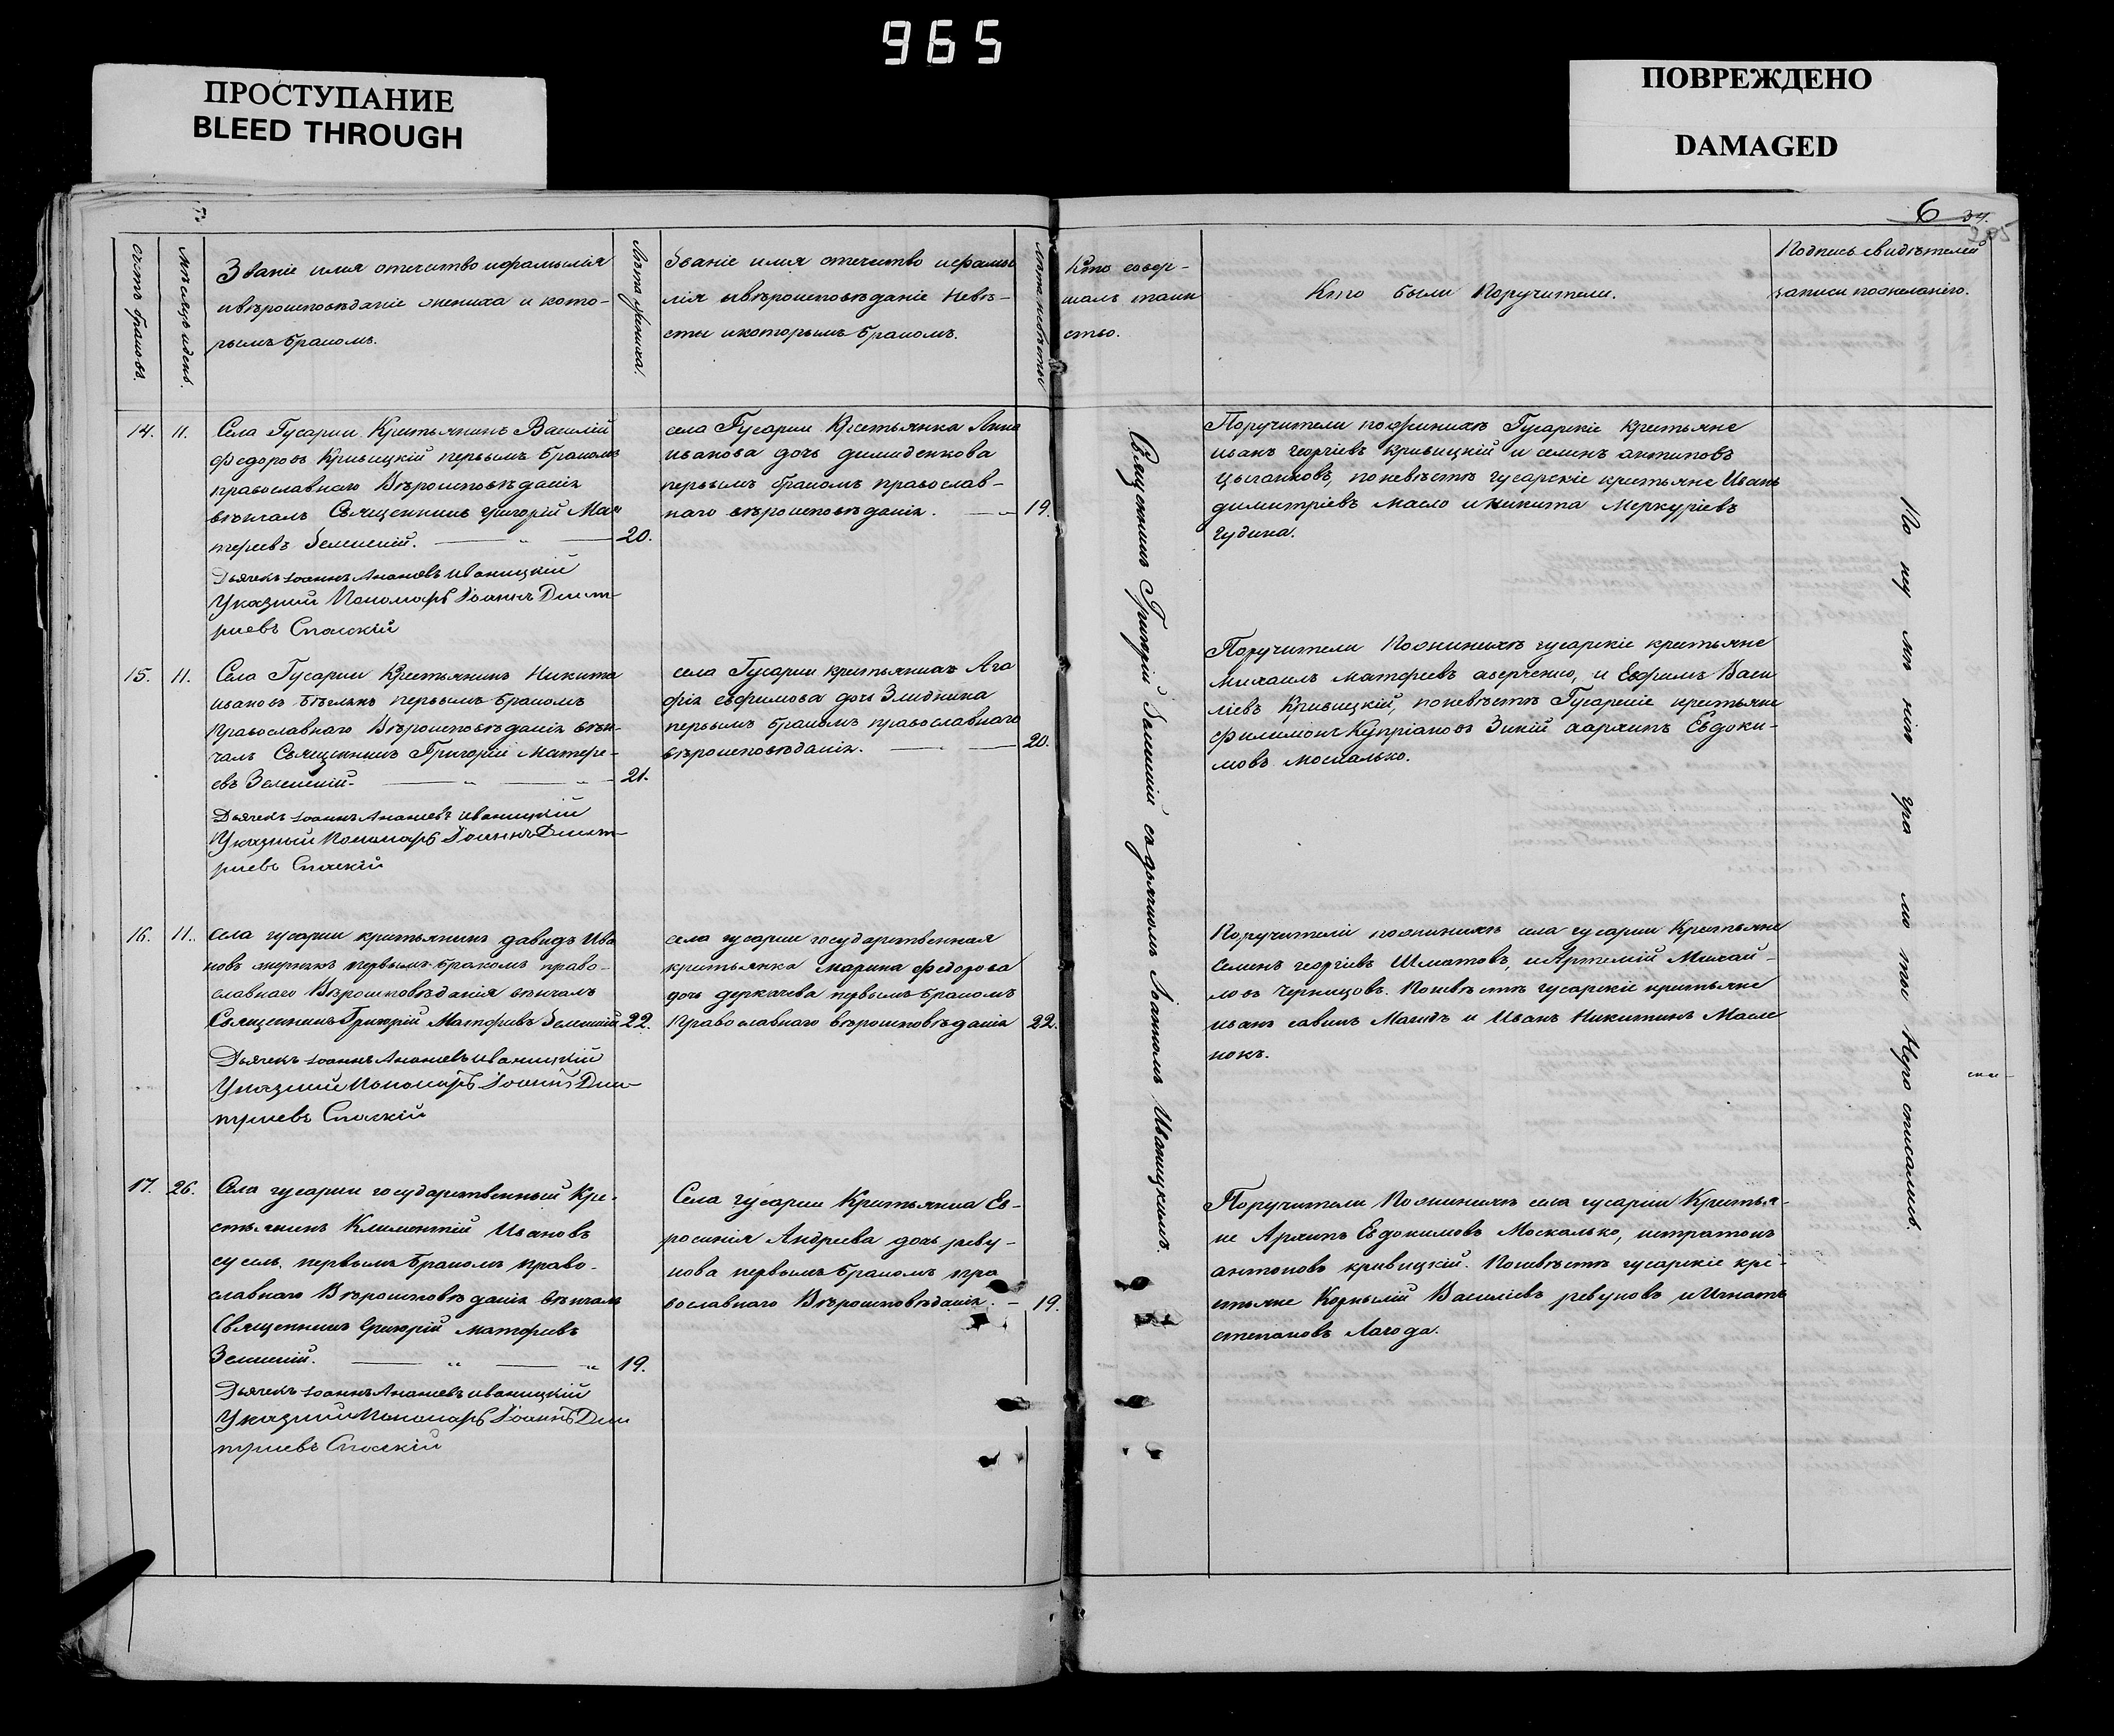 965
ПРОСТУПАНИЕ
BLEED THROUGH
ПОВРЕЖДЕНО
DAMAGED
6 34.
205
Счетъ браковъ.
Мѣсяцъ и день.
Званіе имя отечество и фамилія
и вѣроисповѣданіе жениха и кото-
рымъ бракомъ.
Лѣта жениха.
Званіе имя отечество и фами
лія и вѣроисповѣданіе невѣ-
сты и которымъ бракомъ.
Лѣта невѣсты
Кто совер-
шалъ таин
ство.
Кто были Поручители.
Подпись свидѣтелей
записи по желанію.
14. 11.
Села Гусарки Крестьянинъ Василій
Федоровъ Кривицкій первымъ бракомъ
православнаго Вѣроисповѣданія
вѣнчалъ Священникъ Григорій Мат
феевъ Зеленскій. 20.
Дьячекъ Іоаннъ Ананіевъ Иваницкій
Указный Пономарь Іоаннъ Димит-
ріевъ Спаскій
села Гусарки Крестьянка Анна
иванова дочь
первымъ бракомъ православ-
наго вѣроисповѣданія. 19.
Поручители по женихѣ Гусарскіе крестьяне
иванъ георгіевъ Кривицкій и семенъ антиповъ
Цыганковъ, по невѣстѣ гусарскіе крестьяне Иванъ
димитріевъ Масло и никита Меркуріевъ
Гудина.
15. 11.
Села Гусарки Крестьянинъ Никита
ивановъ Бѣлякъ первымъ бракомъ
Православнаго Вѣроисповѣданія вѣн
чалъ Священникъ Григорій Матфе-
евъ Зеленскій. 21.
Дьячекъ Іоаннъ Ананіевъ Иваницкій
Указный Пономарь Іоаннъ Димит-
ріевъ Спаскій
села Гусарки крестьянка Ага
фія евфимова дочь Злиднина
первымъ бракомъ православнаго
вѣроисповѣданія. 20.
Поручители По женихѣ гусарскіе крестьяне
михаилъ матфеевъ аверченко, и Евфимъ Васи
ліевъ Кривицкій, по невѣстѣ Гусарскіе крестьяне
филимонъ Купріановъ Зикій и архипъ Евдоки-
мовъ москалько.
16. 11.
села гусарки крестьянинъ давидъ Ива
новъ первымъ бракомъ право-
славнаго Вѣроисповѣданія вѣнчалъ
Священникъ Григорій Матфеевъ Зеленскій 22.
Дьячекъ Іоаннъ Ананіевъ Иваницкій
Указный Пономарь Іоаннъ Дими
тріевъ Спаскій
села гусарки государственная
крестьянка марина федорова
дочь деркачева первымъ бракомъ
Православнаго вѣроисповѣданія 22.
Поручители по женихѣ села гусарки Крестьяне
Семенъ георгіевъ Шматовъ, и Артемій Михай-
ловъ Чернцовъ. По невѣстѣ гусарскіе крестьяне
иванъ савинъ и Иванъ Никитинъ Масле
нокъ.
17. 26.
Села гусарки государственный Кре-
стьянинъ Климентій Ивановъ
сусель первымъ бракомъ право-
славнаго Вѣроисповѣданія вѣнчалъ
Священникъ Григорій матфеевъ
Зеленскій. 19.
Дьячекъ Іоаннъ Ананіевъ Иваницкій
Указный Пономарь Іоаннъ Дими
тріевъ Спаскій
Села гусарки Крестьянка Ев-
росинія Андреева дочь реву-
нова первымъ бракомъ пра
вославнаго Вѣроисповѣданія. 19.
Поручители По женихѣ села гусарки Крестья-
не Архипъ Евдокимовъ Москалько, истратонъ
антоновъ кривицкій. По невѣстѣ гусарскіе кре-
стьяне Корнилій Василіевъ ревуновъ и Игнатъ
степановъ Лагода.
Священникъ Григорій Зеленскій съ дьячкомъ Іоанномъ Иваницкимъ.
По не умѣнію гра мо ты